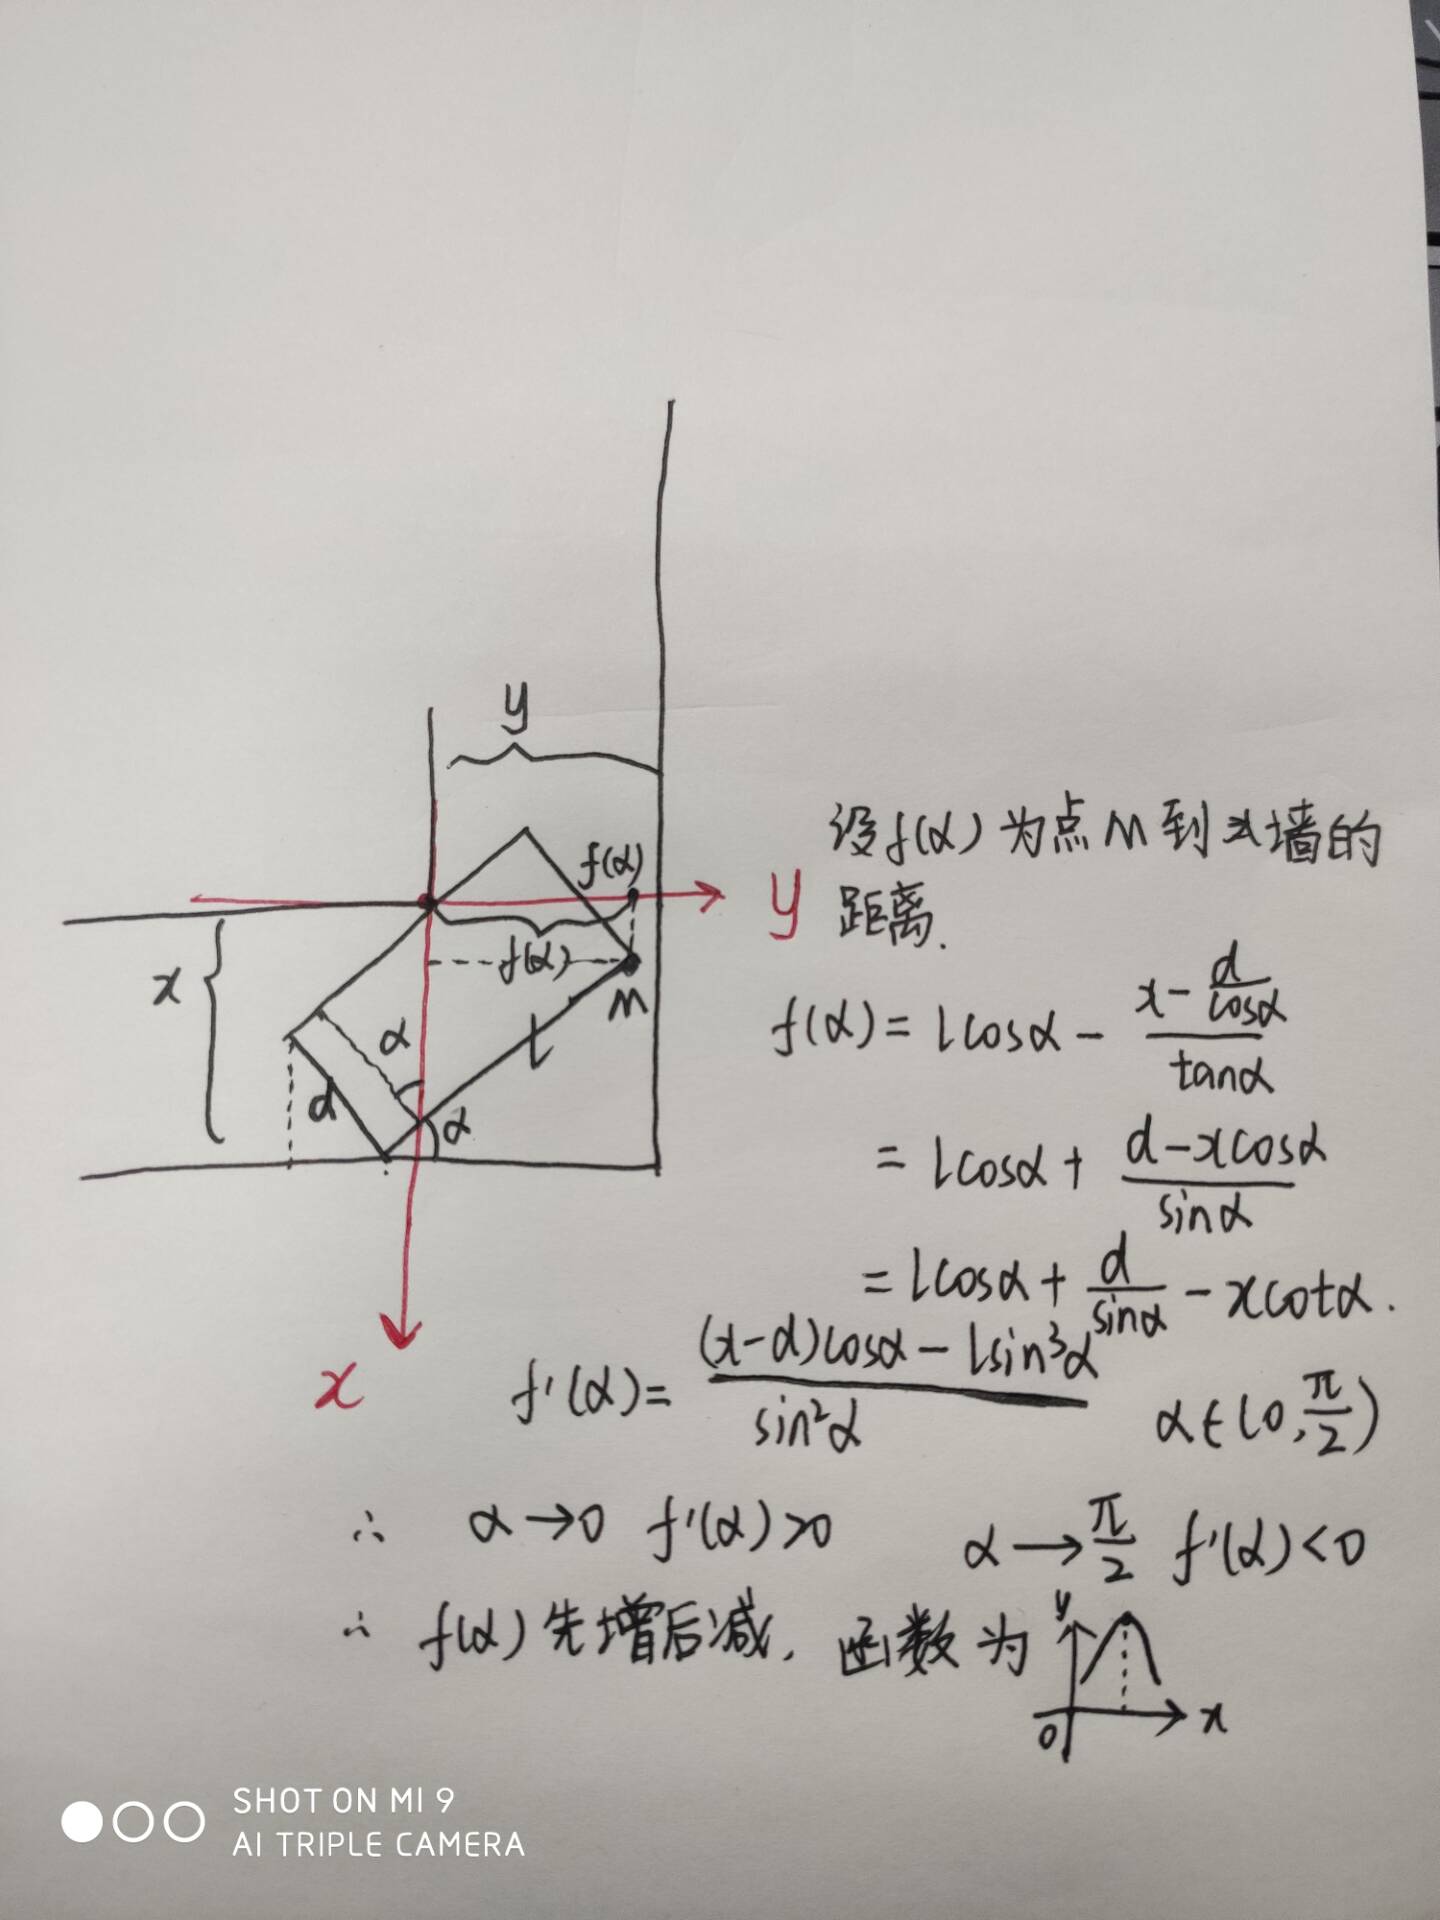 y
f(α)
x
f(α)
M
α
l
d
α
y
x
设f(α)为点M到x墙的
距离.
f(α)= lcosα - (x - d/cosα)/tanα
= lcosα + (d-xcosα)/sinα
= lcosα + d/sinα - xcotα.
f'(α)= ((x-d)cosα - lsin³α)/sin²α α∈(0, π/2)
∴ α→0 f'(α)>0 α→π/2 f'(α)<0
∴ f(α)先增后减, 函数为
y
0
x
SHOT ON MI 9
AI TRIPLE CAMERA